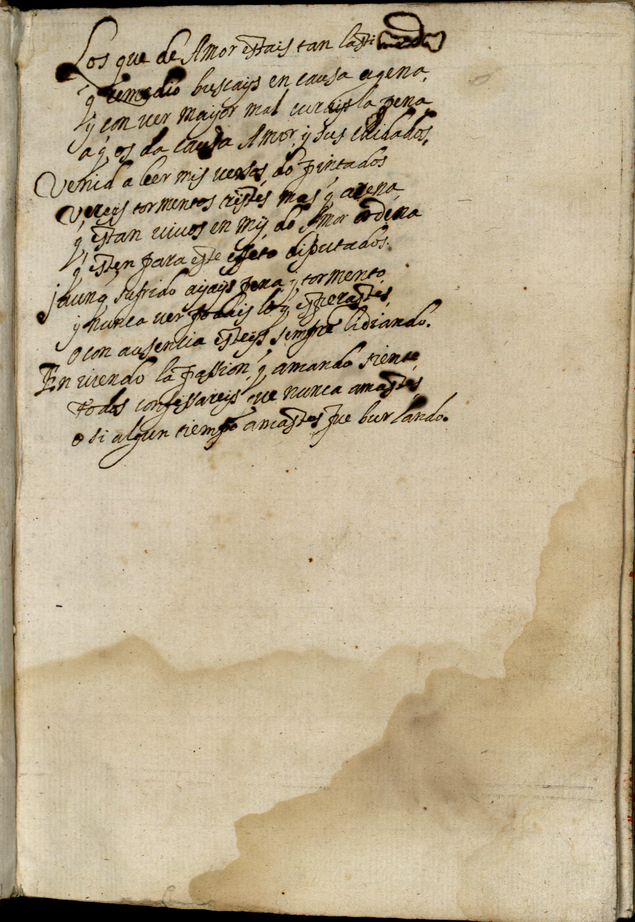 Los que de Amor estais tan lasti mados
q̃ remedio buscays en causa agena,
y con ver mayor mal curays la pena
a q̃ os da causa Amor, y sus cuidados,
Venid a leer mis versos do pintados
vereys tormentos tristes mas q̃ arena
q̃ estan vivos en mi, do Amor ordena
q̃ esten para este effeto diputados.
y aunq̃ sufrido ayays pena, y tormento
y nunca ver podais lo q̃ esperastes,
o con ausencia esteys sempre lidiando.
En viendo la passion q̃ amando siento
todos confessareys que nunca amastes
o si algun tiempo amastes fue burlando.